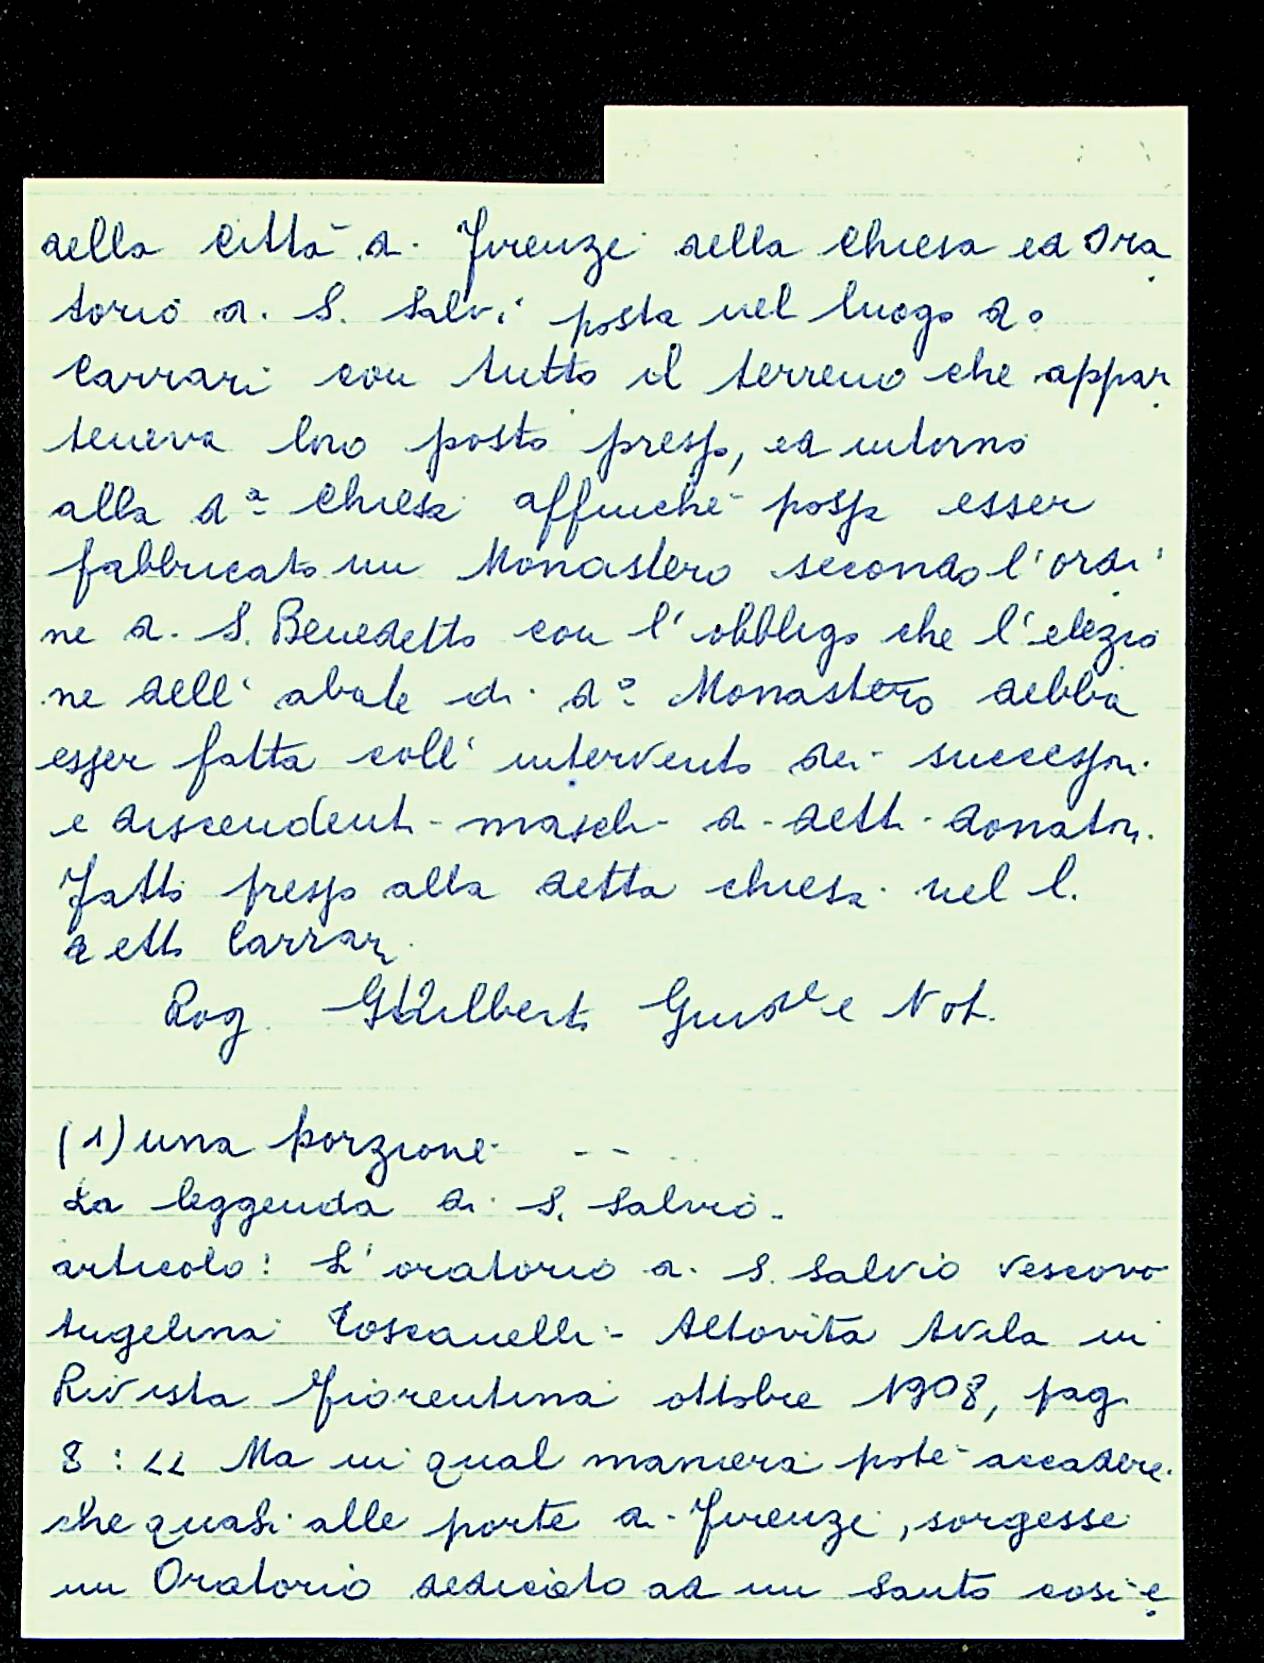 della Città di Firenze della Chiesa ed Ora
torio di S. Salvi posta nel luogo do
Carrari con tutto il terreno che appar
teneva loro posto presso, ed intorno
alla da Chiesa affinché possa esser
fabbricato un Monastero secondo l'ordi
ne di S. Benedetto con l'obbligo che l'elezio
ne dell'abate di do Monastero debba
esser fatta coll'intervento dei successori
e discendenti maschi di detti donatori.
Fatto presso alla detta chiesa nel l.
detto Carrari
Rog. Giudice e Not.
(1) una porzione - - .
La leggenda di S. Salvio.
articolo: L'oratorio di S. Salvio Vescovo
Angelina Toscanelli - Altovita Avila in
Rivista Fiorentina ottobre 1908, pag.
8 : << Ma in qual maniera poté accadere
che quasi alle porte di Firenze, sorgesse
un Oratorio dedicato ad un santo così e